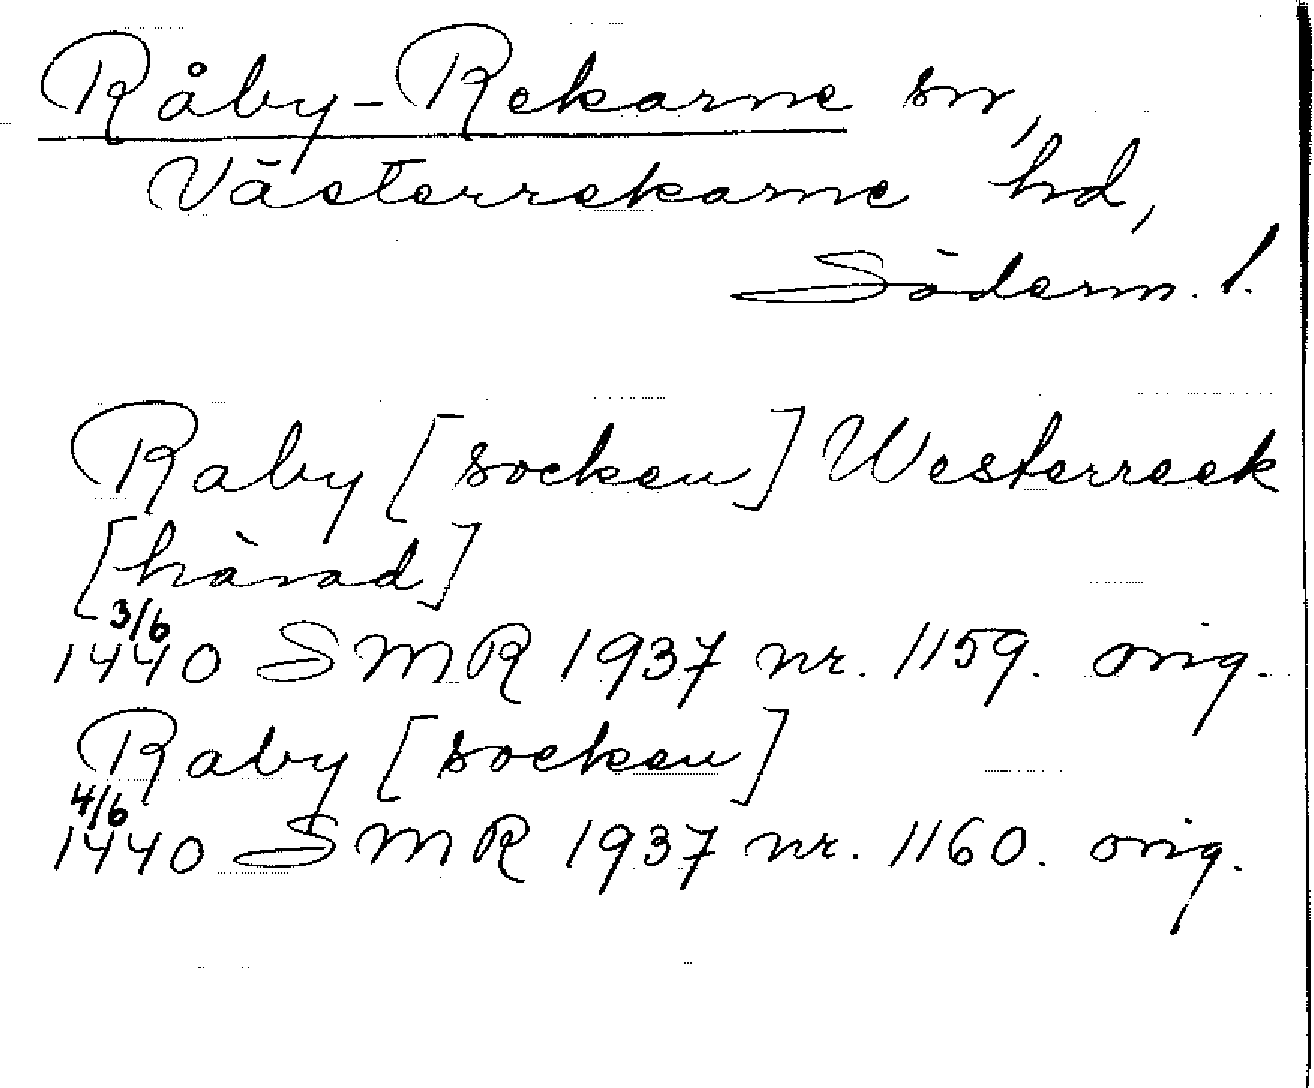 Råby-Rekarne sn,
Västerrekarne hd,
Söderm. l.
Raby [socken] Westerreek
[härad]
3/6
1440 SMR 1937 nr. 1159. orig.
Raby [socken]
4/6
1440 SMR 1937 nr. 1160. orig.